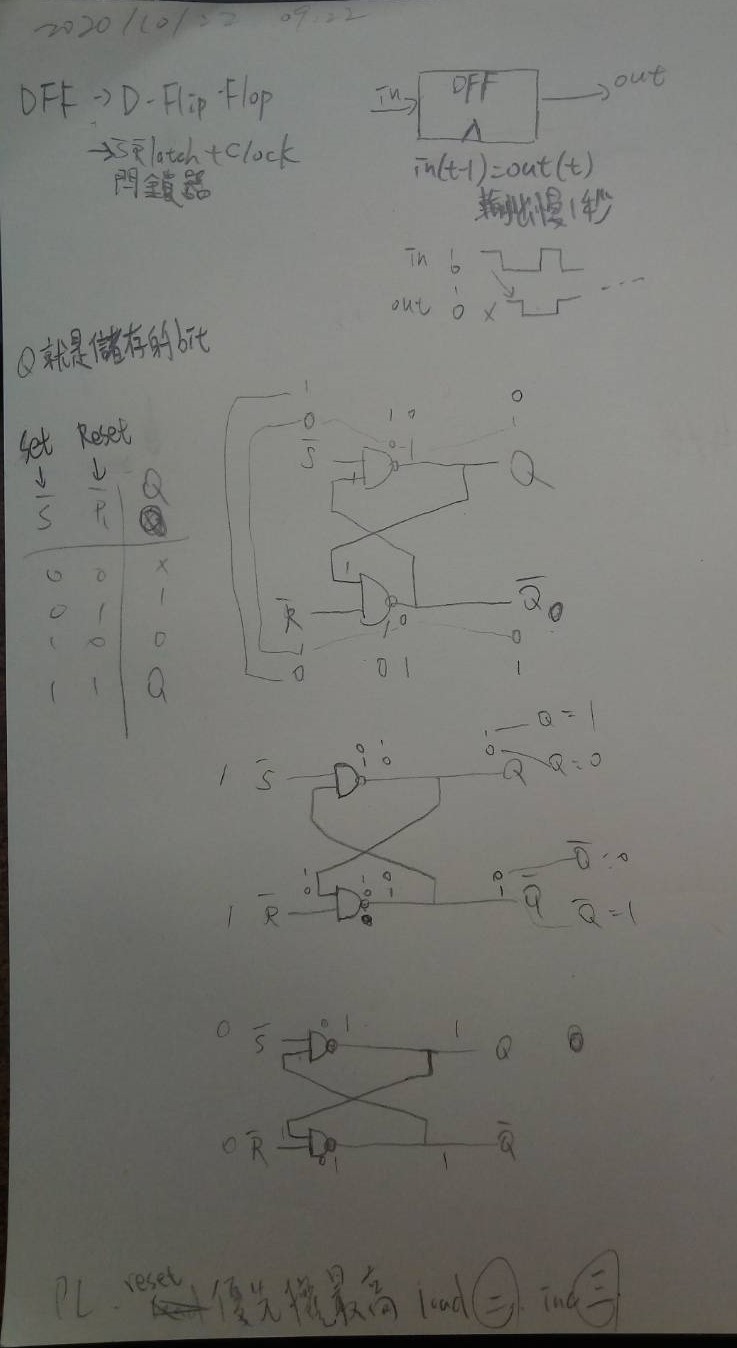 2020/10/22 09:22
DFF → D-Flip-Flop
→ S̅R̅ latch + Clock
閂鎖器
in DFF out
in(t-1)=out(t)
輸出慢1秒
in 1 0
out 1 0 x ...
Q就是儲存的bit
Set Reset
↓ ↓
S̅ R̅ Q
0 0 x
0 1 1
1 0 0
1 1 Q
1 0
0 1 0 1
S̅ 0 1 Q
1
R̅ Q̅ 0
1 1 0 0
0 0 1 1
Q = 1
1 S̅ 0 1 1 0 1 0 Q Q=0
Q̅=0
1 R̅ 1 0 0 1 Q̅ Q̅=1
0 S̅ 0 1 1 Q
0 R̅ 0 1 1 Q̅
PC. reset 優先權最高 load 二. inc 三